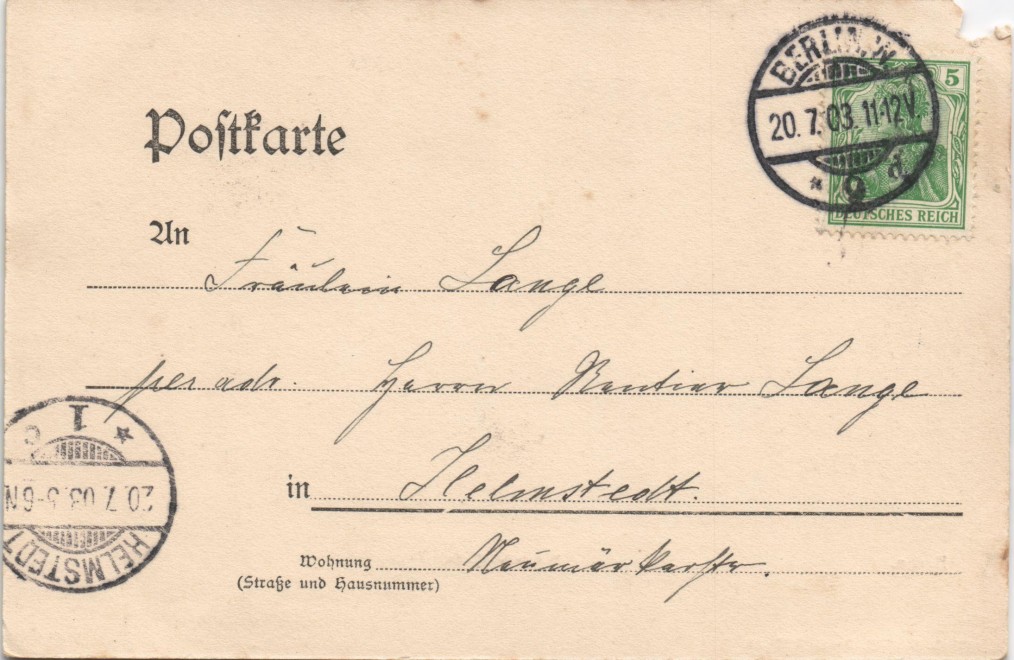 Postkarte
BERLIN. W.
20. 7. 03. 11-12V.
* 9 d.
5
DEUTSCHES REICH
An
Fräulein Lange
per adr. Herrn Rentier Lange
in Helmstedt.
Wohnung Neumärkerstr.
(Straße und Hausnummer)
HELMSTEDT
20. 7. 03. 5-6N
* 1 c